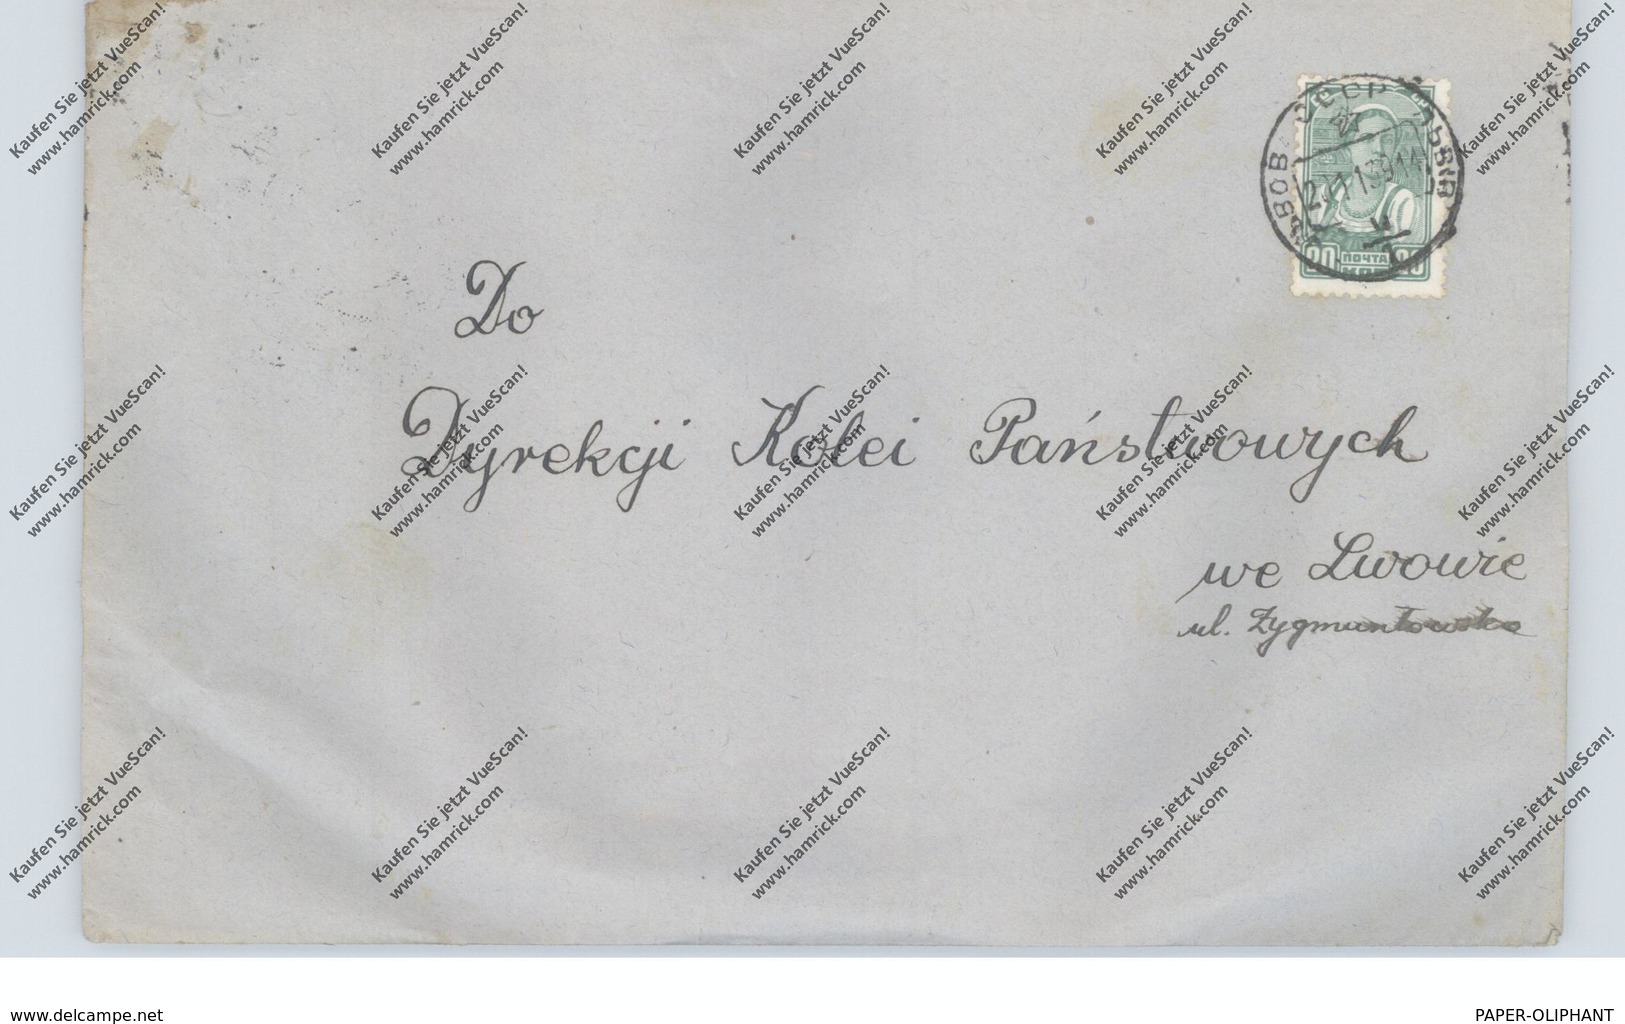 ЛЬВОВ СССР ЛЬВІВ
20 ПОЧТА 20
КОП
Do
Dyrekcji Kolei Państwowych
we Lwowie
ul. Zygmuntowska
Kaufen Sie jetzt VueScan!
www.hamrick.com
www.delcampe.net
PAPER-OLIPHANT